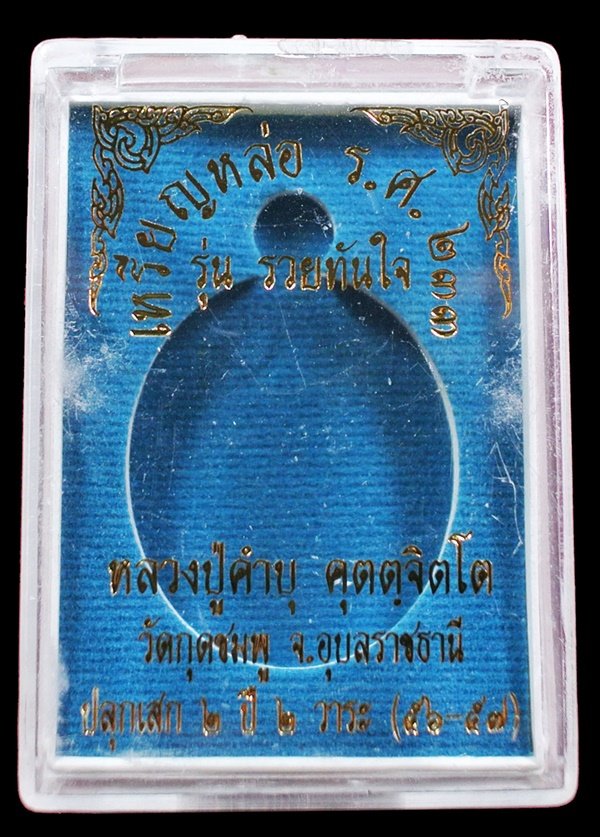 เหรียญหล่อ ร.ศ. ๒๓๓
รุ่น รวยทันใจ
หลวงปู่คำบุ คุตตฺจิตโต
วัดกุดชมพู จ.อุบลราชธานี
ปลุกเสก ๒ ปี ๒ วาระ (๕๖-๕๗)